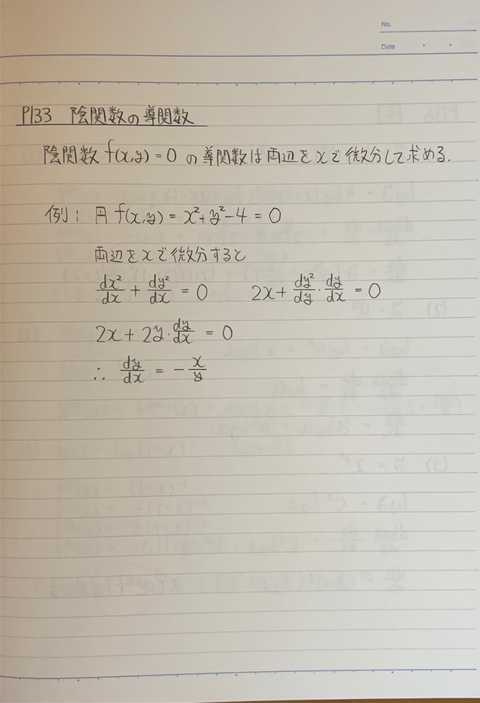 No.
Date
P133 陰関数の導関数
陰関数 f(x,y) = 0 の導関数は両辺をxで微分して求める.
例: 円 f(x,y) = x²+y²-4 = 0
両辺をxで微分すると
dx²/dx + dy²/dx = 0  2x + dy²/dy · dy/dx = 0
2x + 2y · dy/dx = 0
∴ dy/dx = - x/y